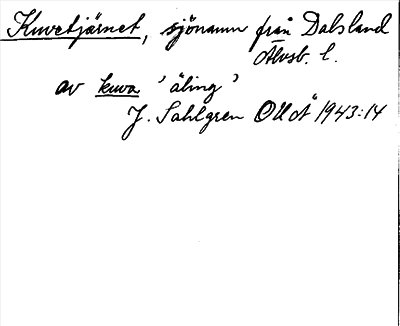 Kuvetjärnet, sjönamn från Dalsland
Älvsb. l.
av kuva 'äling'
J. Sahlgren OUoÅ 1943:14